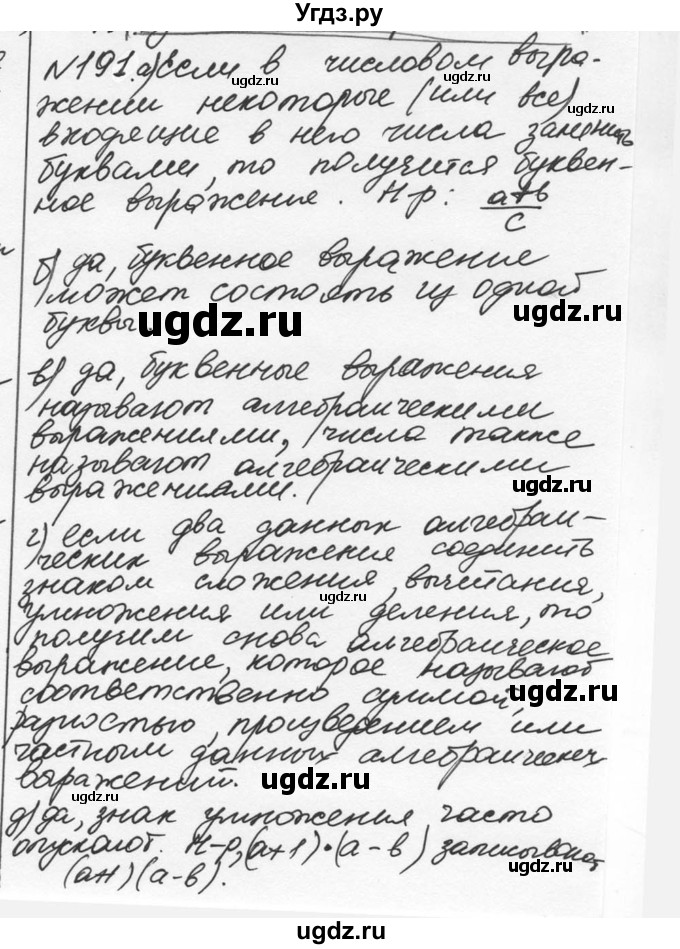 Угдз.ру
№191.а)Если в числовом выра-
жении некоторые (или все)
входящие в него числа заменить
буквами, то получится буквен-
ное выражение. Н-р: a+b
c
б) да, буквенное выражение
может состоять из одной
буквы.
в) да, буквенные выражения
называют алгебраическими
выражениями, числа также
называют алгебраическими
выражениями.
г) если два данных алгебраи-
ческих выражения соединить
знаком сложения, вычитания,
умножения или деления, то
получим снова алгебраическое
выражение, которое называют
соответственно суммой,
разностью, произведением или
частным данных алгебраических
выражений.
д) да, знак умножения часто
опускают. Н-р, (a+1)·(a-b) записывают
(a+1)(a-b).
ugdz.ru
ugdz.ru
ugdz.ru
ugdz.ru
ugdz.ru
ugdz.ru
ugdz.ru
ugdz.ru
ugdz.ru
ugdz.ru
ugdz.ru
ugdz.ru
ugdz.ru
ugdz.ru